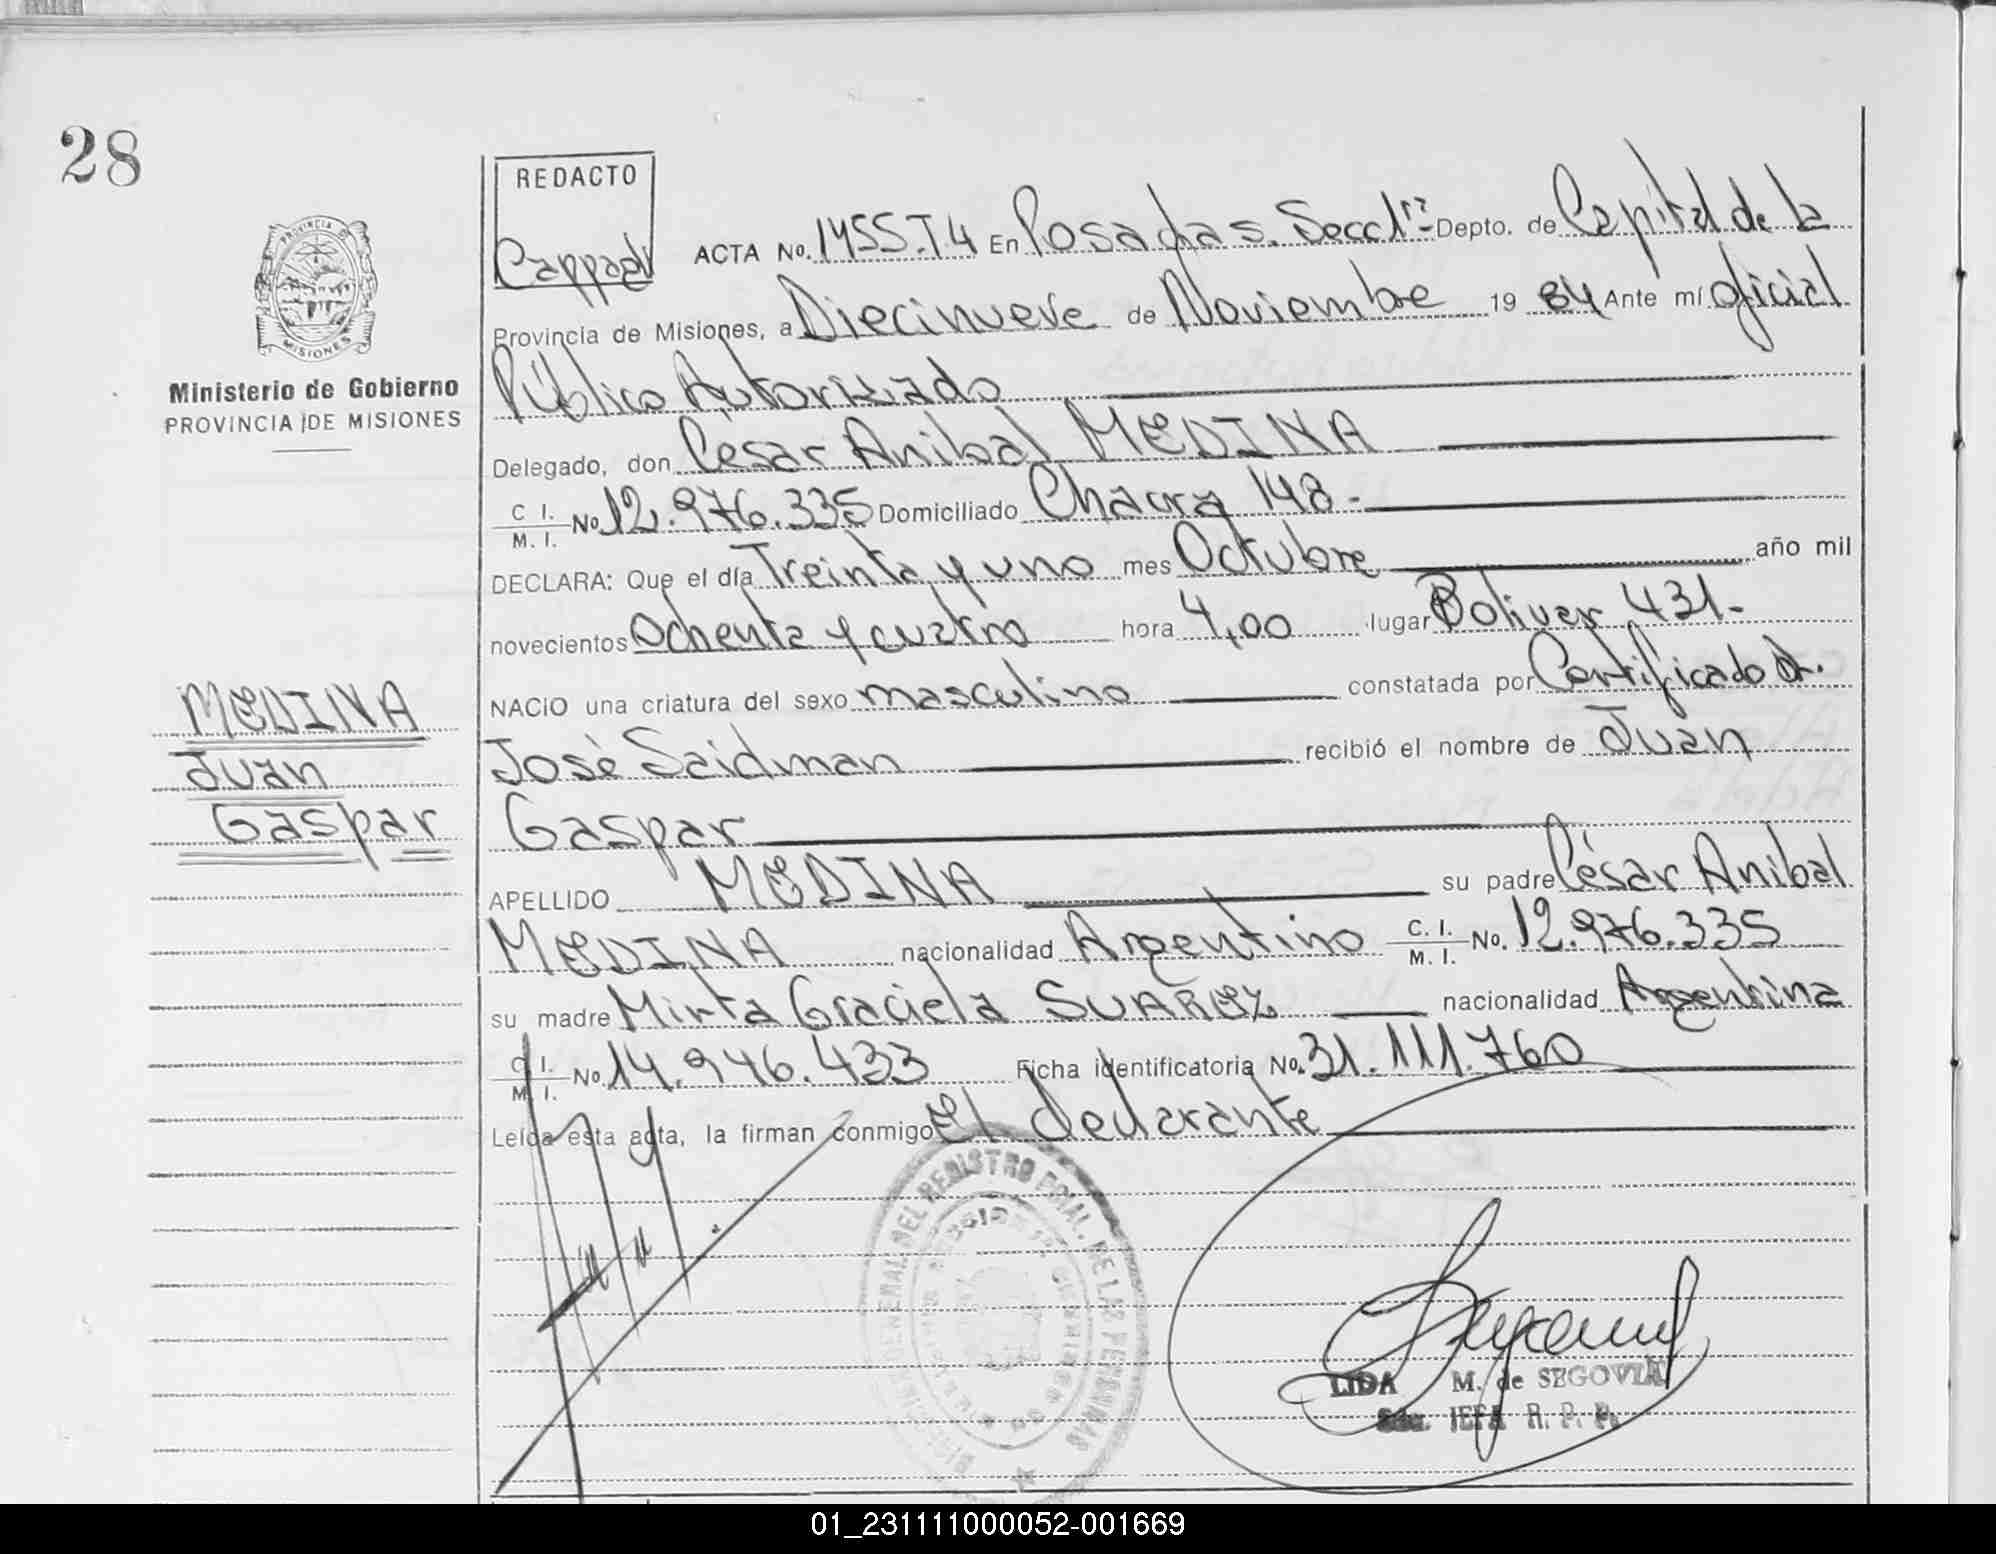 28
REDACTO
ACTA No. 1455.T.4 En Posadas. Secc 1ª Depto. de Capital de la
PROVINCIA DE
MISIONES
Provincia de Misiones, a Diecinueve de Noviembre 1984 Ante mí Oficial
Ministerio de Gobierno
PROVINCIA DE MISIONES
Público Autorizado
Delegado, don Cesar Anibal MEDINA
C I.
M. I. No 12.976.335 Domiciliado Chacra 148-
DECLARA: Que el día Treinta y uno mes Octubre año mil
novecientos Ochenta y cuatro hora 4,00 lugar Bolivar 431-
NACIO una criatura del sexo masculino constatada por Certificado Dr.
José Saidman recibió el nombre de Juan
Gaspar
MEDINA
Juan
Gaspar
APELLIDO MEDINA su padre César Anibal
MEDINA nacionalidad Argentino C. I.
M. I. No. 12.976.335
su madre Mirta Graciela SUAREZ nacionalidad Argentina
C. I.
M. I. No. 14.946.433 Ficha identificatoria No. 31.111.760
Leída esta acta, la firman conmigo el declarante
GENERAL DEL REGISTRO PCIAL. DE LAS PERSONAS
LIDA M. de SEGOVIA
JEFA R. P. P.
01_231111000052-001669